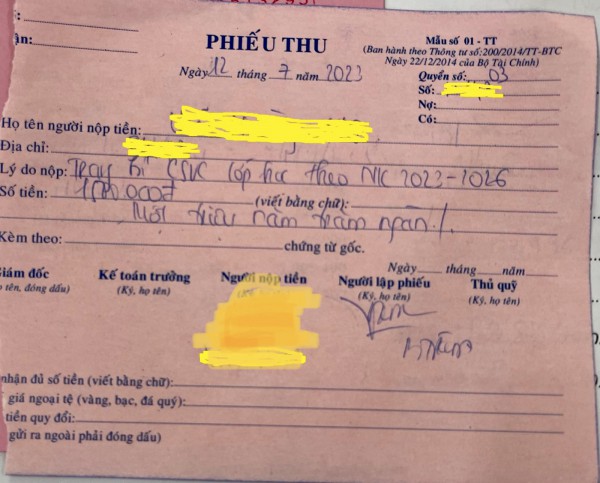 PHIẾU THU
Mẫu số 01 - TT
(Ban hành theo Thông tư số:200/2014/TT-BTC
Ngày 22/12/2014 của Bộ Tài Chính)
Ngày 12 tháng 7 năm 2023
Quyển số: 03
Số:
Nợ:
Có:
Họ tên người nộp tiền:
Địa chỉ:
Lý do nộp: Trang bị CSVC lớp học theo NK 2023-2026
Số tiền: 1500.000đ (viết bằng chữ):
Một triệu năm trăm ngàn./.
Kèm theo: chứng từ gốc.
Ngày tháng năm
Giám đốc Kế toán trưởng Người nộp tiền Người lập phiếu Thủ quỹ
tên, đóng dấu) (Ký, họ tên) (Ký, họ tên) (Ký, họ tên)
nhận đủ số tiền (viết bằng chữ):
giá ngoại tệ (vàng, bạc, đá quý):
tiền quy đổi:
gửi ra ngoài phải đóng dấu)